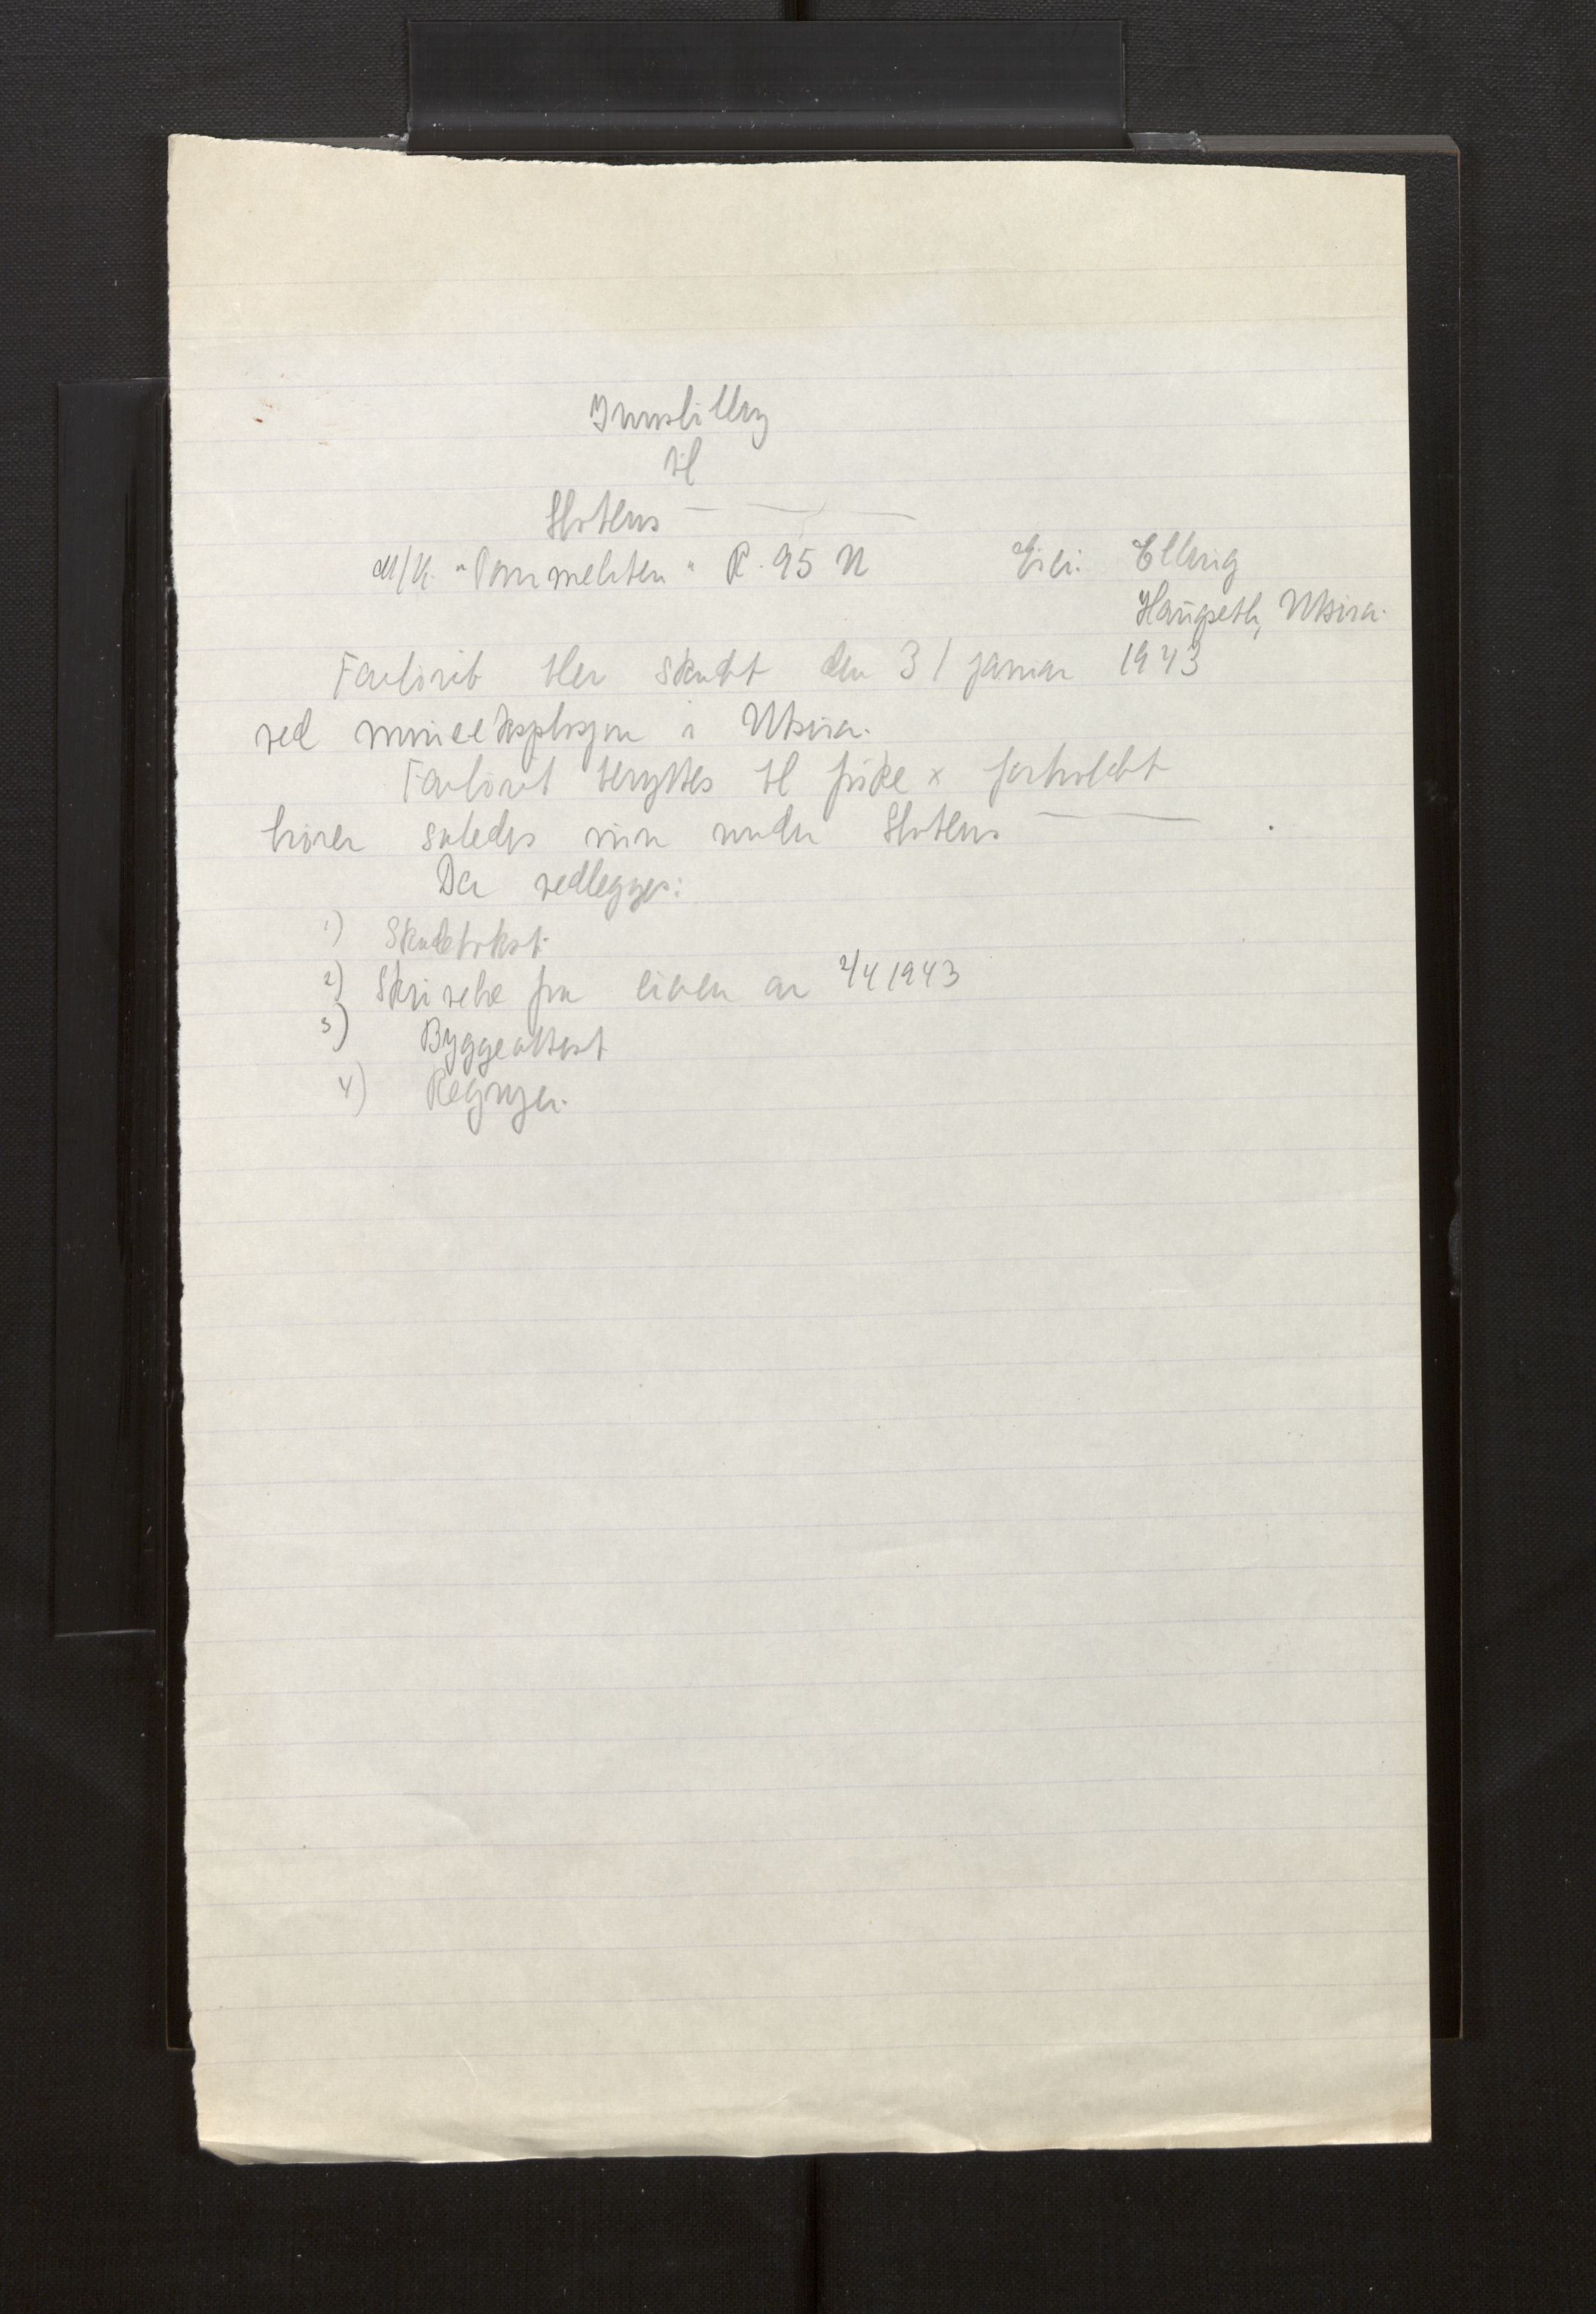 Innstilling
til
Statens — — —
M/K. "Pommeliten" R. 95 U Eier: Elling
Haugseth, Utsira.
Fartöiet blev skadt den 31 januar 1943
ved mineeksplosjon i Utsira.
Fartöiet benyttes til fiske x forholdet
hörer således inn under Statens — —
Der vedlegges:
1) Skadetakst.
2) Skrivelse fra eieren av 2/4 1943
3) Byggeattest
4) Regninger.